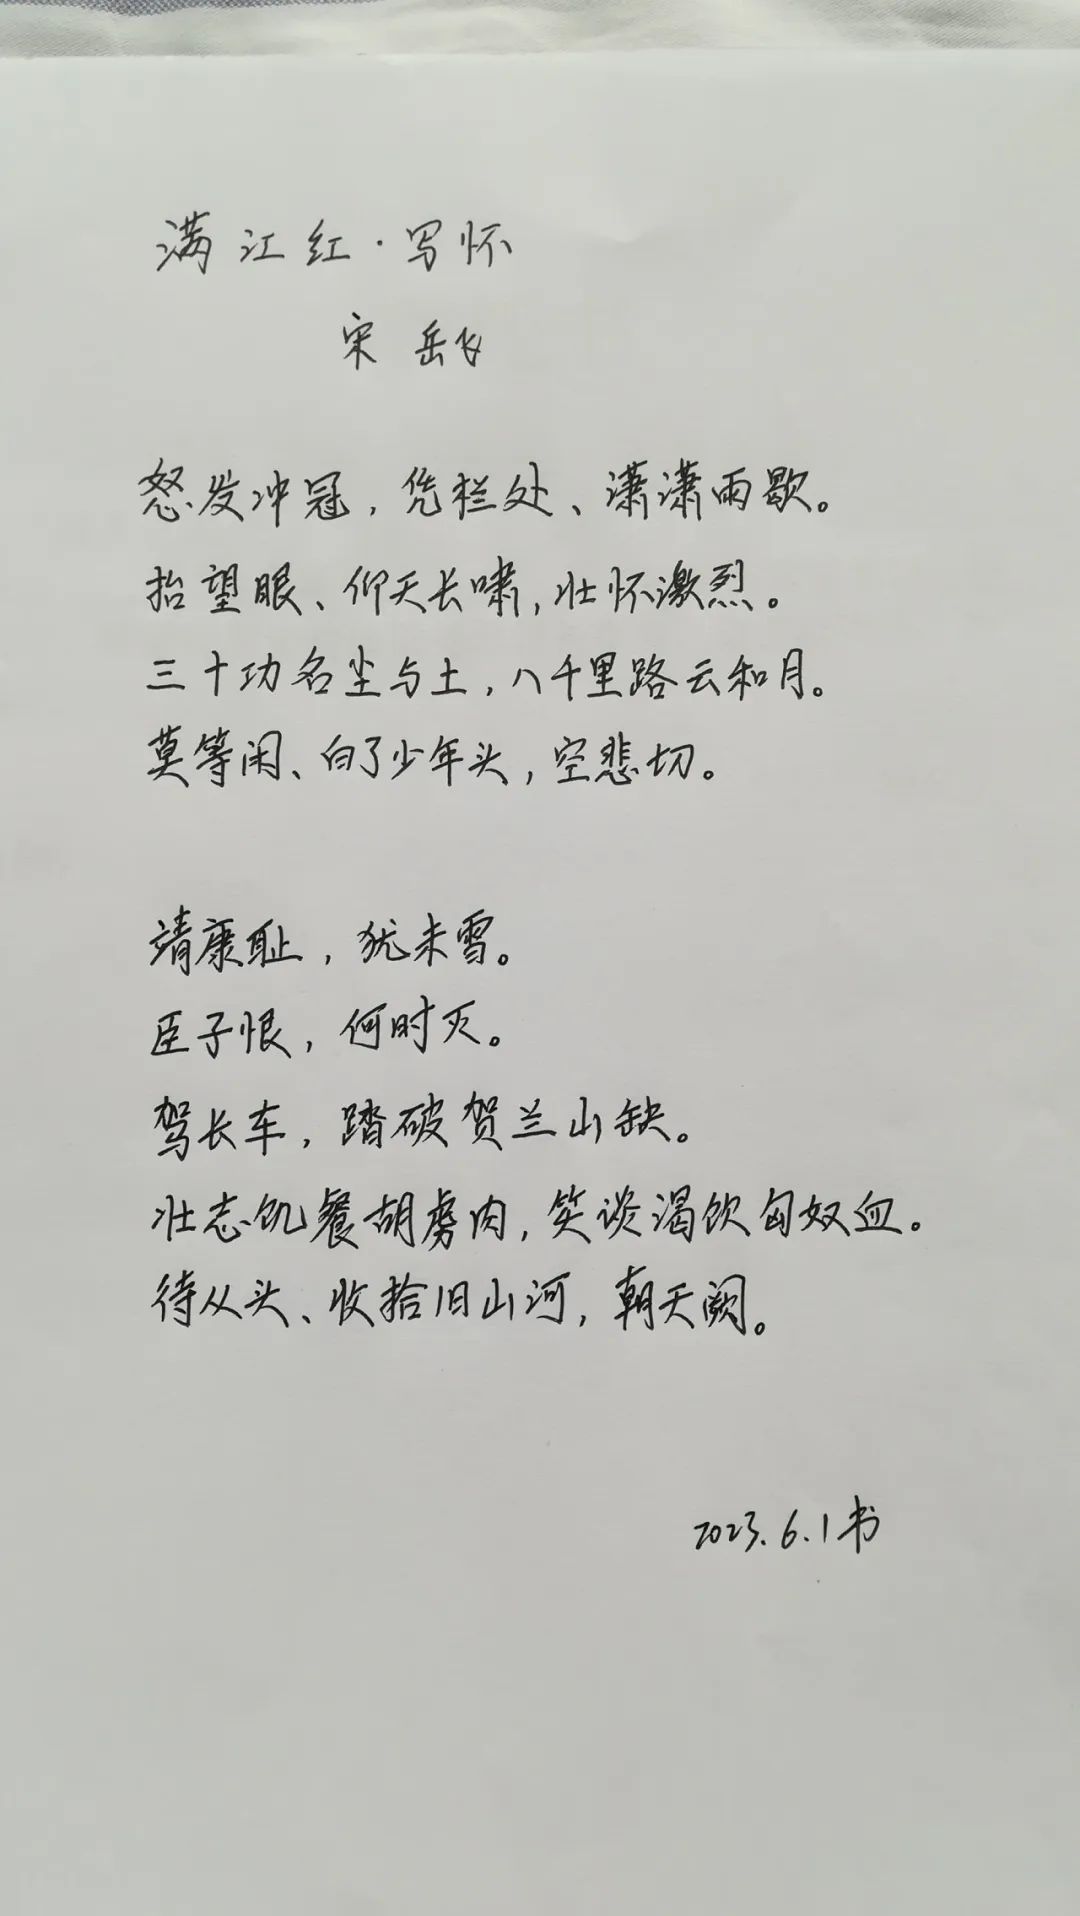 满江红·写怀
宋 岳飞
怒发冲冠，凭栏处、潇潇雨歇。
抬望眼、仰天长啸，壮怀激烈。
三十功名尘与土，八千里路云和月。
莫等闲、白了少年头，空悲切。
靖康耻，犹未雪。
臣子恨，何时灭。
驾长车，踏破贺兰山缺。
壮志饥餐胡虏肉，笑谈渴饮匈奴血。
待从头、收拾旧山河，朝天阙。
2023.6.1书